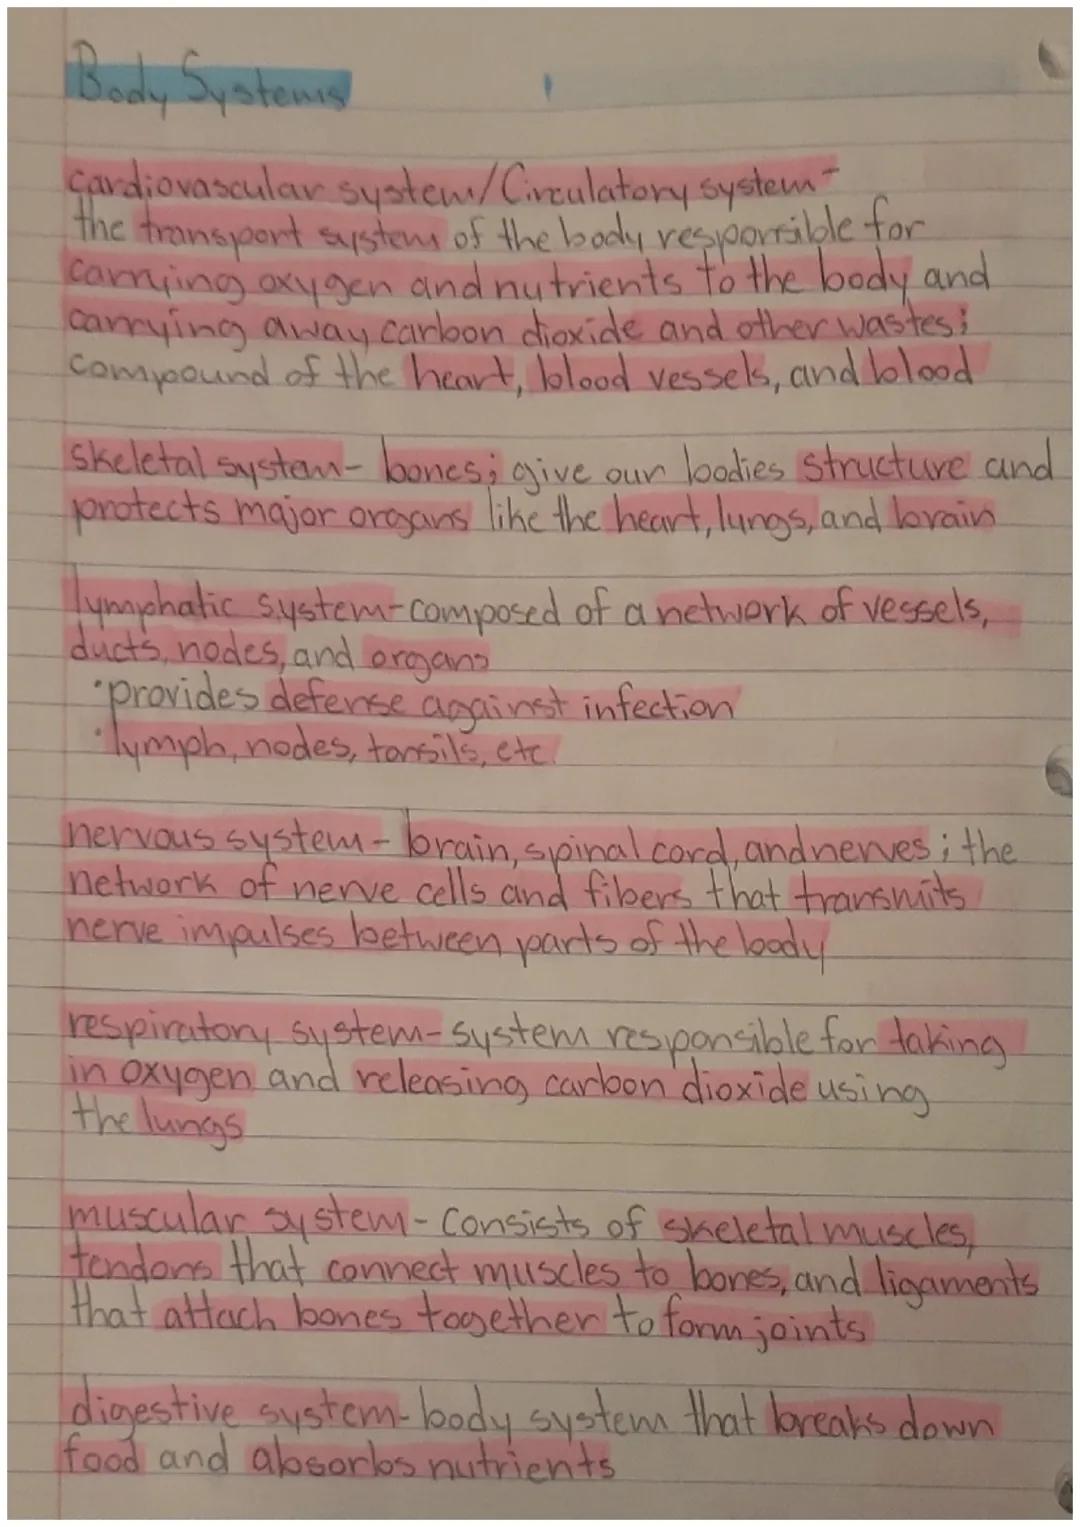 Body Systems
cardiovascular system/Circulatory system-
the transport system of the body responsible for
carrying oxygen and nutrients to the body and
carrying away carbon dioxide and other wastes;
compound of the heart, blood vessels, and blood
skeletal system- bones; give our bodies structure and
protects major organs like the heart, lungs, and brain
lymphatic system-composed of a network of vessels,
ducts, nodes, and organs
•provides defense against infection
•lymph, nodes, tonsils, etc.
nervous system- brain, spinal cord, and nerves; the
network of nerve cells and fibers that transmits
nerve impulses between parts of the body
respiratory system-system responsible for taking
in oxygen and releasing carbon dioxide using
the lungs
muscular system- Consists of skeletal muscles,
tendons that connect muscles to bones, and ligaments
that attach bones together to form joints
digestive system-body system that breaks down
food and absorbs nutrients